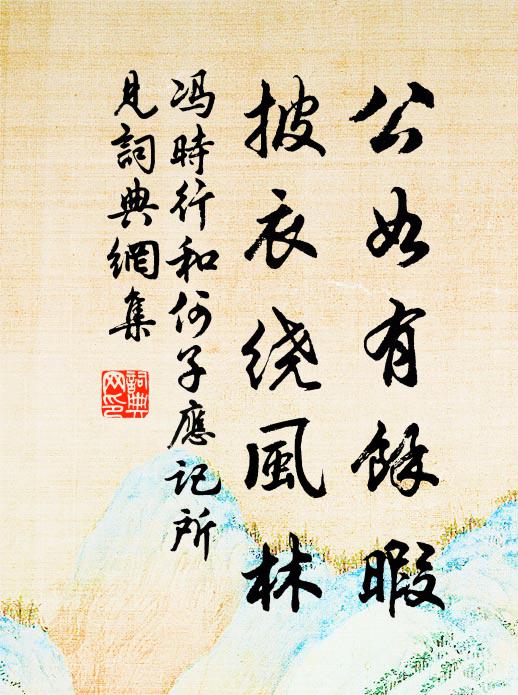 公如有餘暇
披衣绕風林
冯時行和何子應记所
見詞典網集
詞典
网印